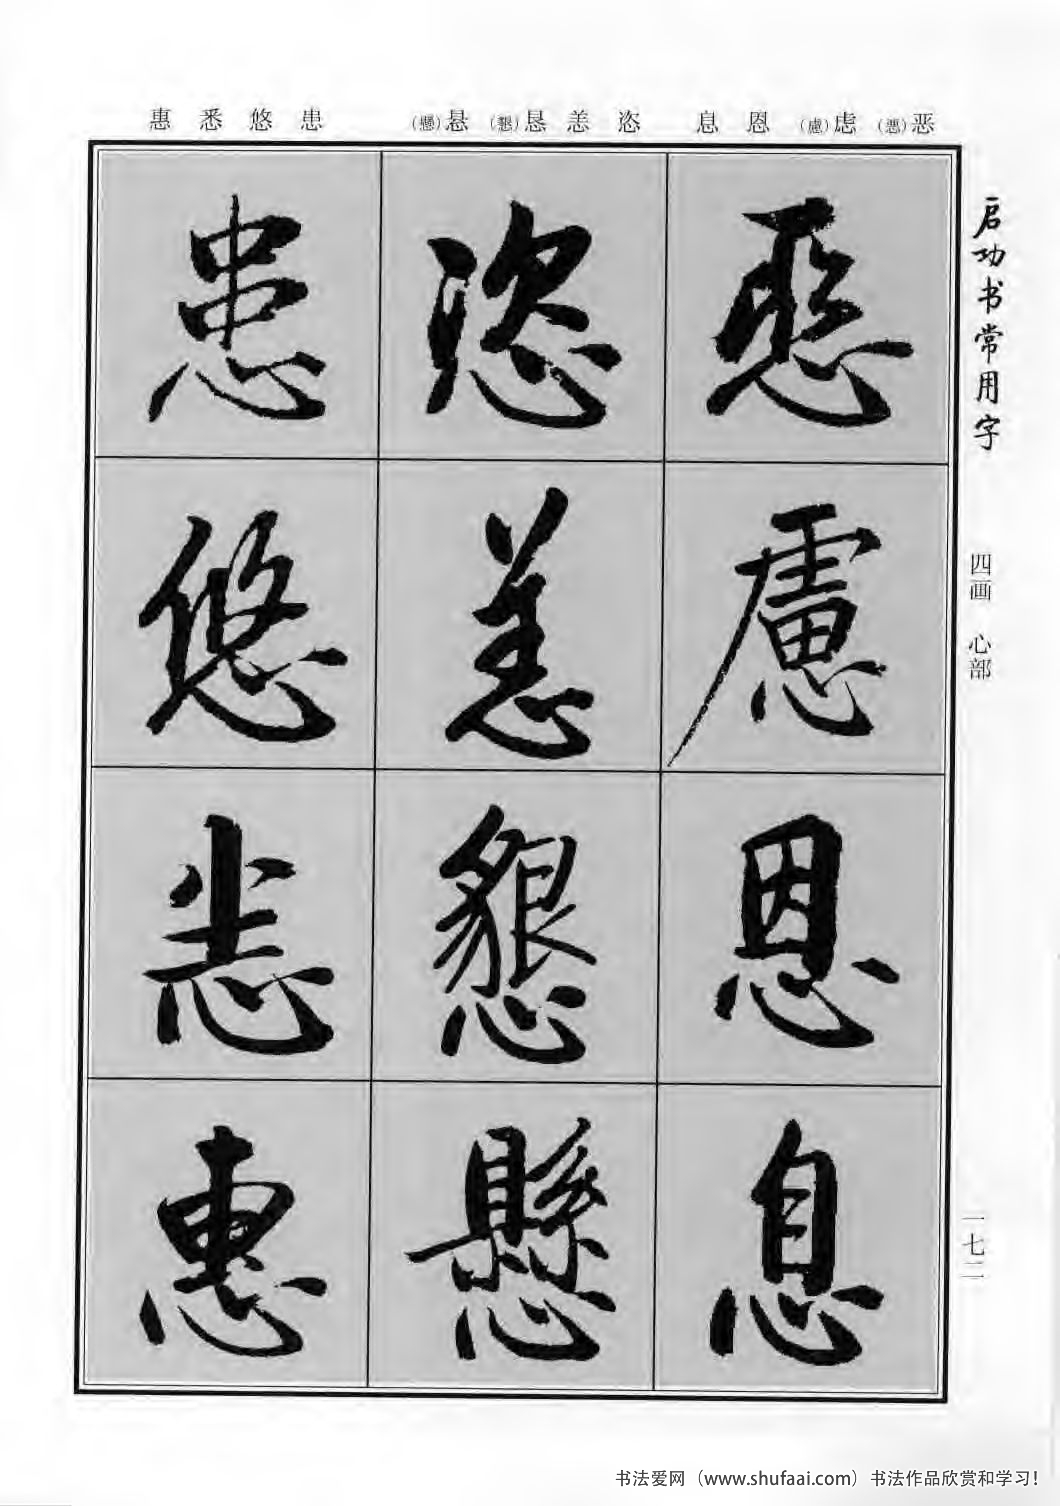 启功书常用字
四画 心部
一七二
恶(惡) 虑(慮) 恩 息
恣 恙 恳(懇) 悬(懸)
患 悠 悉 惠
惡
慮
恩
息
恣
恙
懇
懸
患
悠
悉
惠
书法爱网（www.shufaai.com）书法作品欣赏和学习！